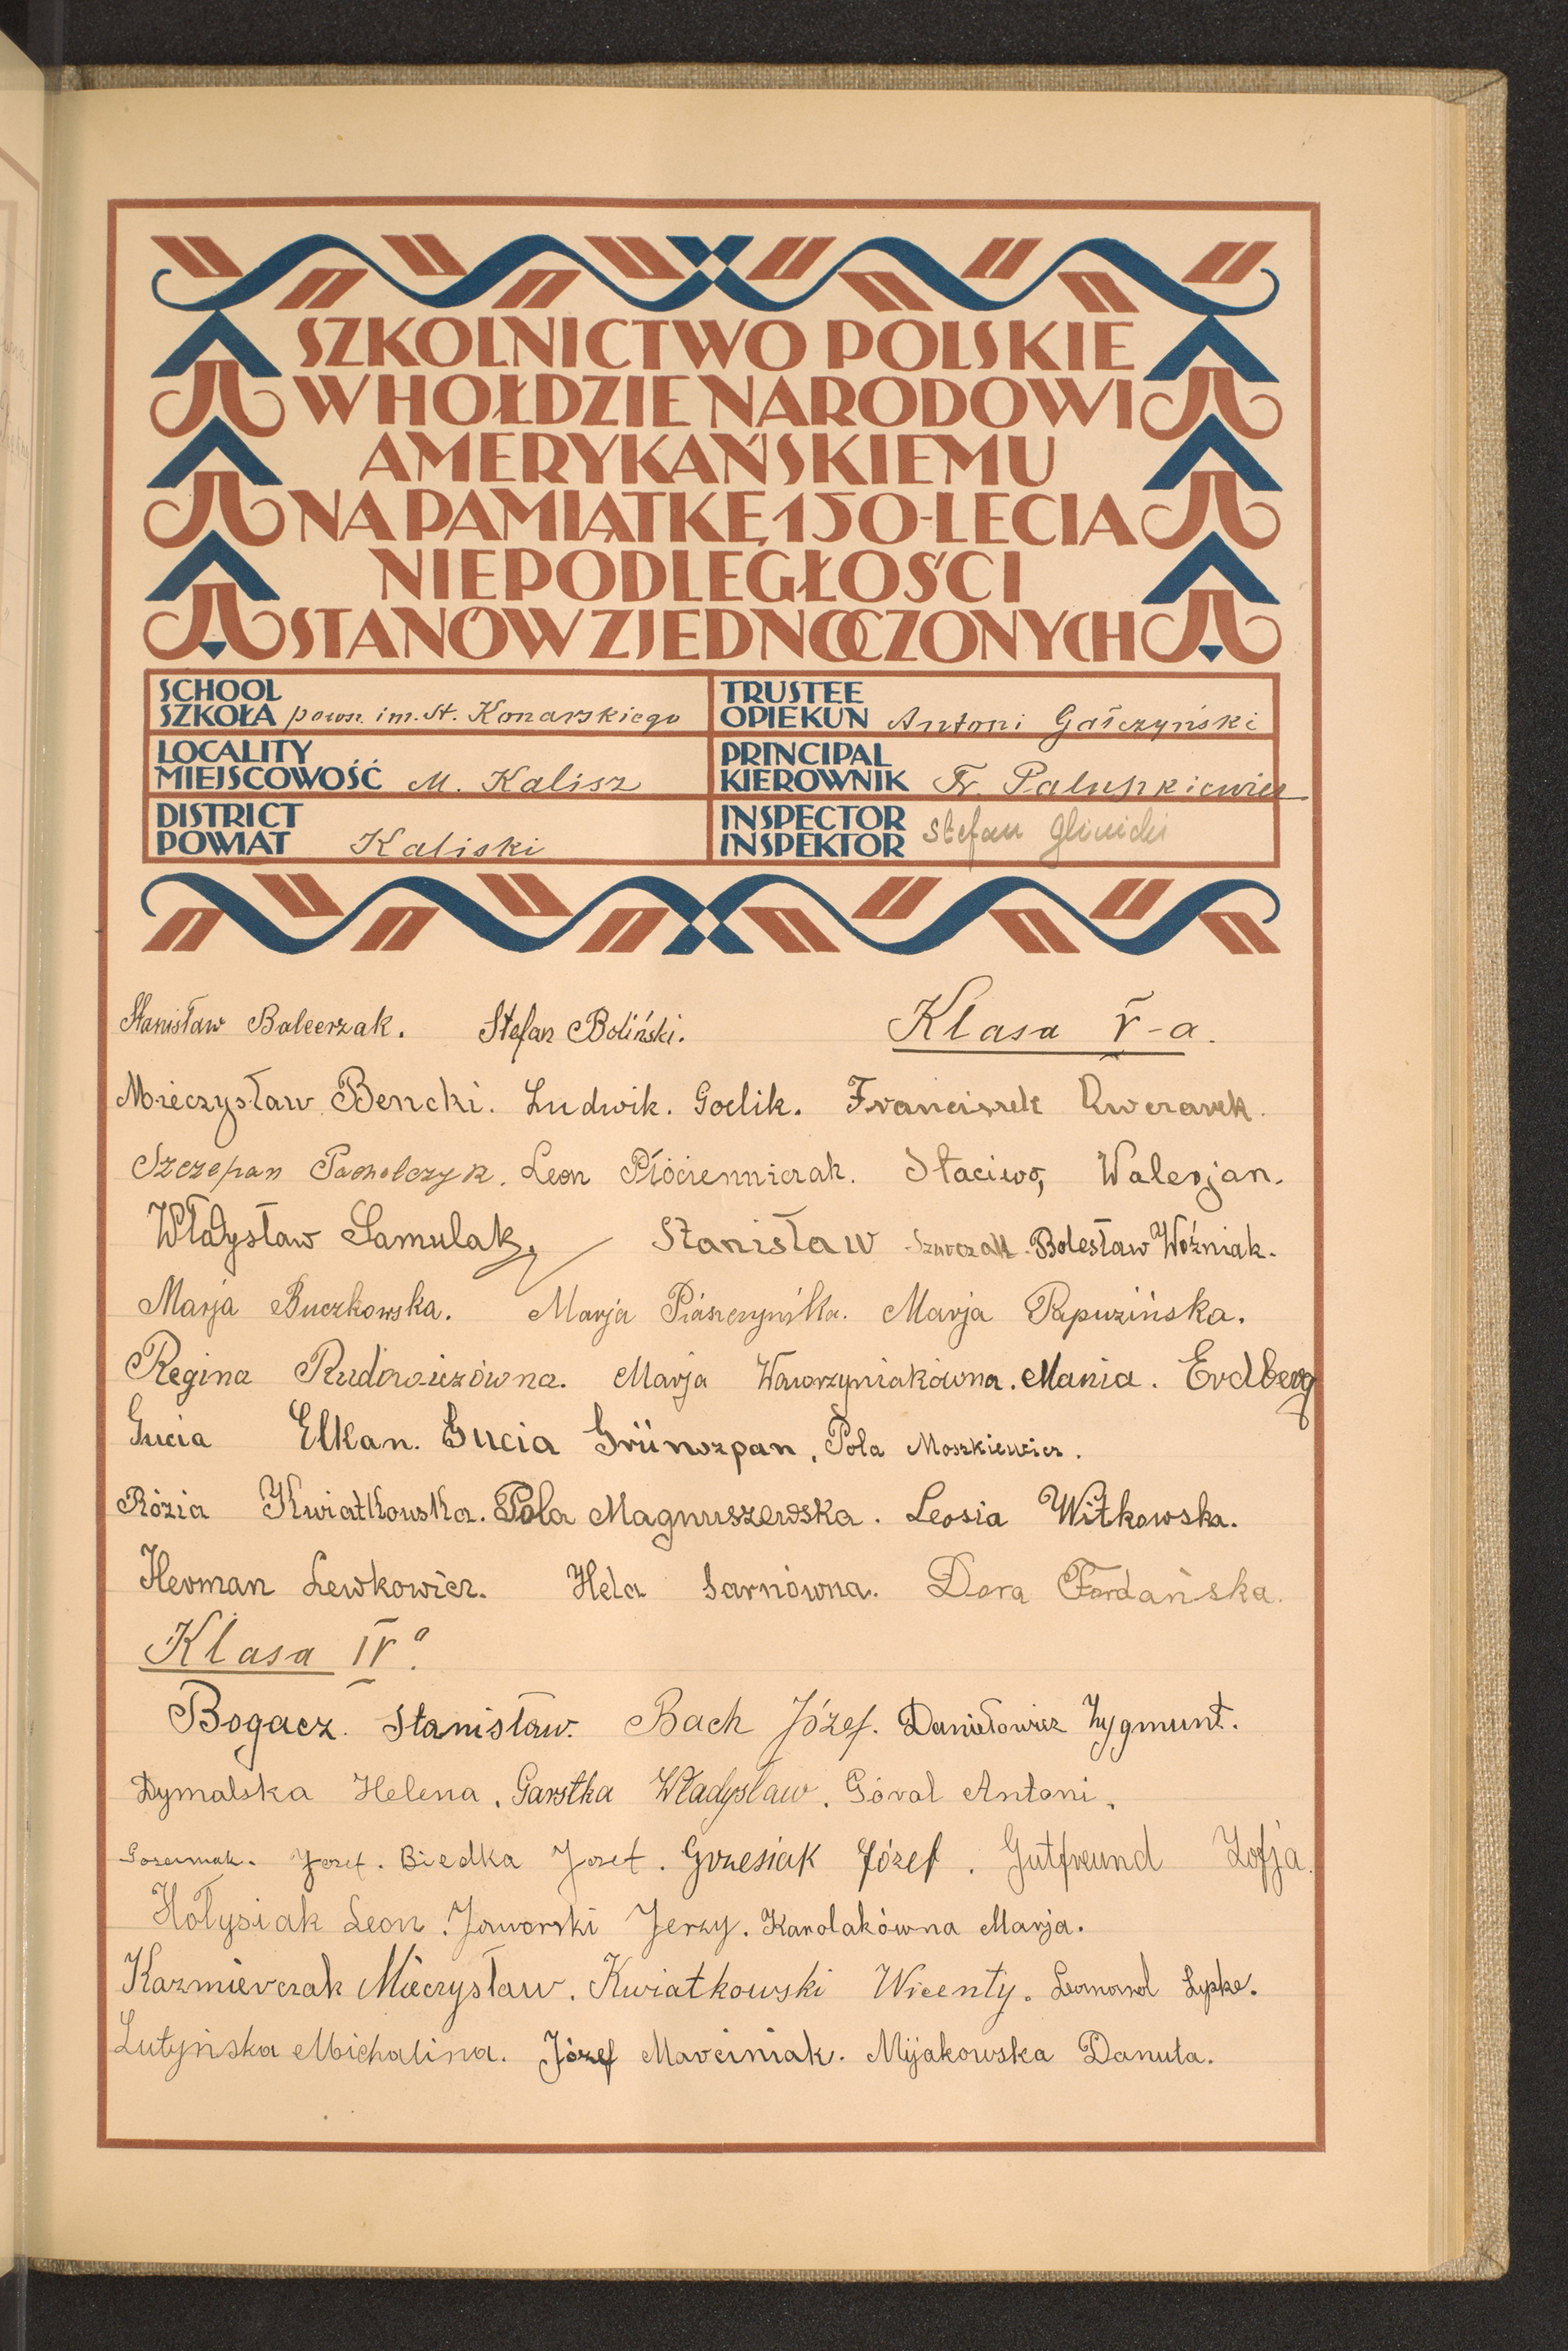 SZKOLNICTWO POLSKIE
W HOŁDZIE NARODOWI
AMERYKAŃSKIEMU
NA PAMIĄTKĘ 150-LECIA
NIEPODLEGŁOŚCI
STANÓW ZJEDNOCZONYCH
SCHOOL
SZKOŁA powsz. im. St. Konarskiego
TRUSTEE
OPIEKUN Antoni Gałczyński
LOCALITY
MIEJSCOWOŚĆ M. Kalisz
PRINCIPAL
KIEROWNIK Fr. Paluszkiewicz
DISTRICT
POWIAT Kaliski
INSPECTOR
INSPEKTOR Stefan Glinicki
Stanisław Balcerzak. Stefan Boliński. Klasa V-a.
Mieczysław Bencki. Ludwik. Goclik. Franciszek Owczarek.
Szczepan Pacholczyk. Leon Płócienniczak. Staciwo, Walerjan.
Władysław Samulak, Stanisław Bolesław Woźniak.
Marja Buczkowska. Marja Piaszczyńska. Marja Papuzińska.
Regina Rudowiczówna. Marja Wawrzyniakówna. Mania. Erdberg
Gucia Elkan. Gucia Grünszpan, Pola Moszkiewicz.
Rózia Kwiatkowska. Pola Magnuszewska. Leosia Witkowska.
Herman Lewkowicz. Hela Sarnówna. Dora Fordańska.
Klasa IVa.
Bogacz. Stanisław. Bach Józef. Daniełowicz Zygmunt.
Dymalska Helena, Garstka Władysław, Góral Antoni,
Józef. Biedka Józef. Grzesiak Józef. Gutfreund Zofja.
Hołysiak Leon. Jaworski Jerzy. Karolakówna Marja.
Kazmierczak Mieczysław, Kwiatkowski Wicenty. Leonard Lypke.
Lutyńska Michalina. Józef Marciniak. Mijakowska Danuta.